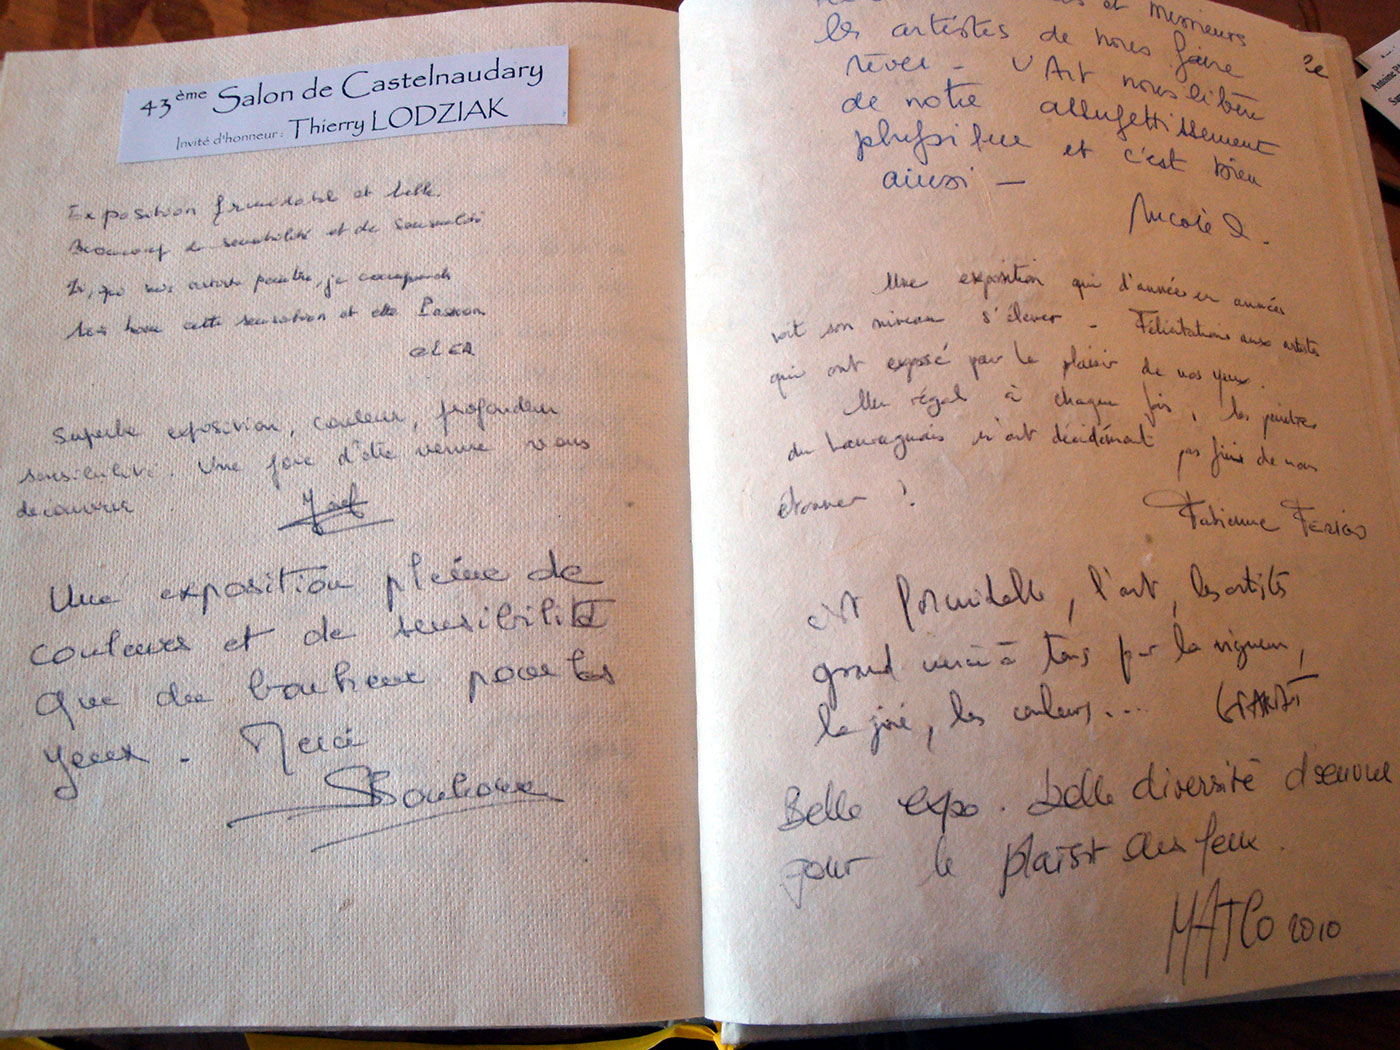 43ème Salon de Castelnaudary
Invité d'honneur : Thierry LODZIAK
Exposition formidable et belle.
Beaucoup de sensibilité et de sensualité
artiste peintre, je comprends
cette sensation et cette Passion
Superbe exposition, couleur, profondeur
sensibilité. Une joie d'être venue vous
découvrir
Une exposition pleine de
couleurs et de sensibilité
Que du bonheur pour les
yeux. Merci
et messieurs
les artistes de nous faire
rêver - L'Art nous libère
de notre assujettissement
physique et c'est bien
ainsi -
Nicole
Une exposition qui d'année en années
voit son niveau s'élever - Félicitations aux artistes
qui ont exposé pour le plaisir de nos yeux.
Un régal à chaque fois, les peintres
du Lauragais n'ont décidément pas fini de nous
étonner !
Fabienne
est formidable, l'art, les artistes
grand merci à tous par la vigueur,
la joie, les couleurs....
Belle expo. belle diversité
pour le plaisir des yeux.
MATCO 2010
2e
Antoine